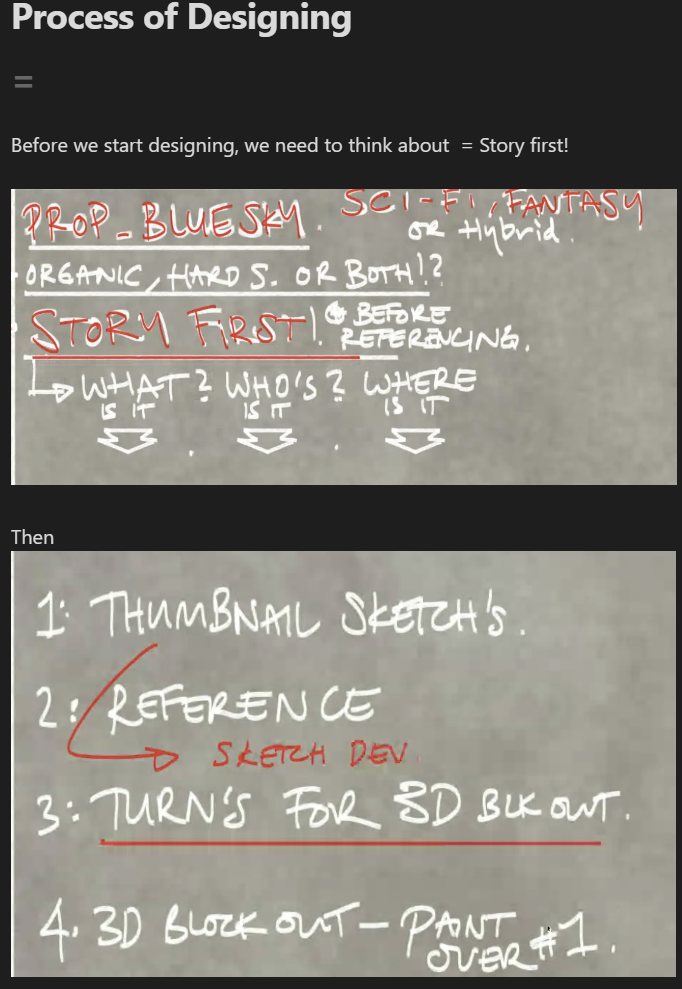 Process of Designing
=
Before we start designing, we need to think about  = Story first!
PROP_BLUESKY. SCI-FI, FANTASY
OR Hybrid.
ORGANIC, HARD S. OR BOTH!?
STORY FIRST! BEFORE
REFERENCING.
WHAT? WHO'S? WHERE
IS IT IS IT IS IT
Then
1: THUMBNAIL SKETCH'S.
2: REFERENCE
SKETCH DEV
3: TURN'S FOR 3D BLKOUT.
4. 3D BLOCK OUT - PAINT
OVER #1.